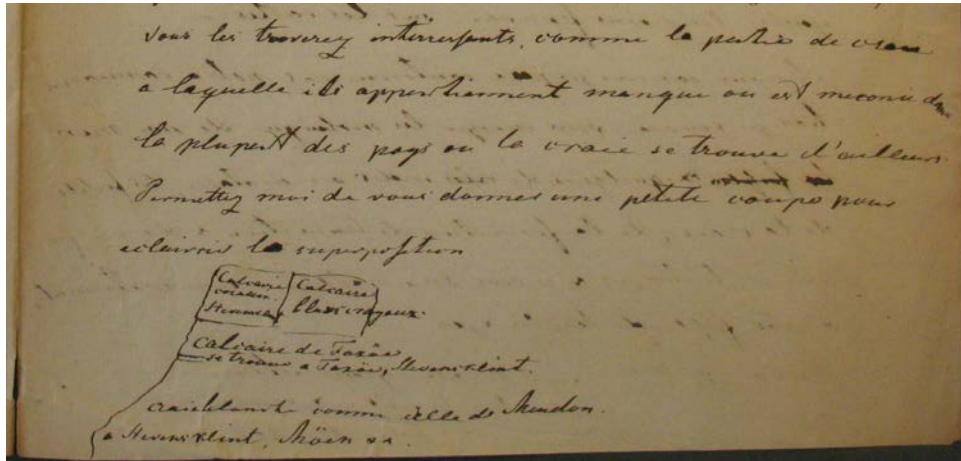 vous les troverez interressants, comme la partie de craie
a laquelle ils appertiennent manque ou est meconnu dans
la plupert des pays ou la craie se trouve d'ailleurs.
Permettez moi de vous donner une petite coupe pour
eclaircir la superposition
Calcaire Calcaire
Stevens blanc crayeux.
calcaire de Faxöe
se trouve a Faxöe, Stevensklint.
craie blanche comme celle de Meudon.
a Stevensklint, Möen